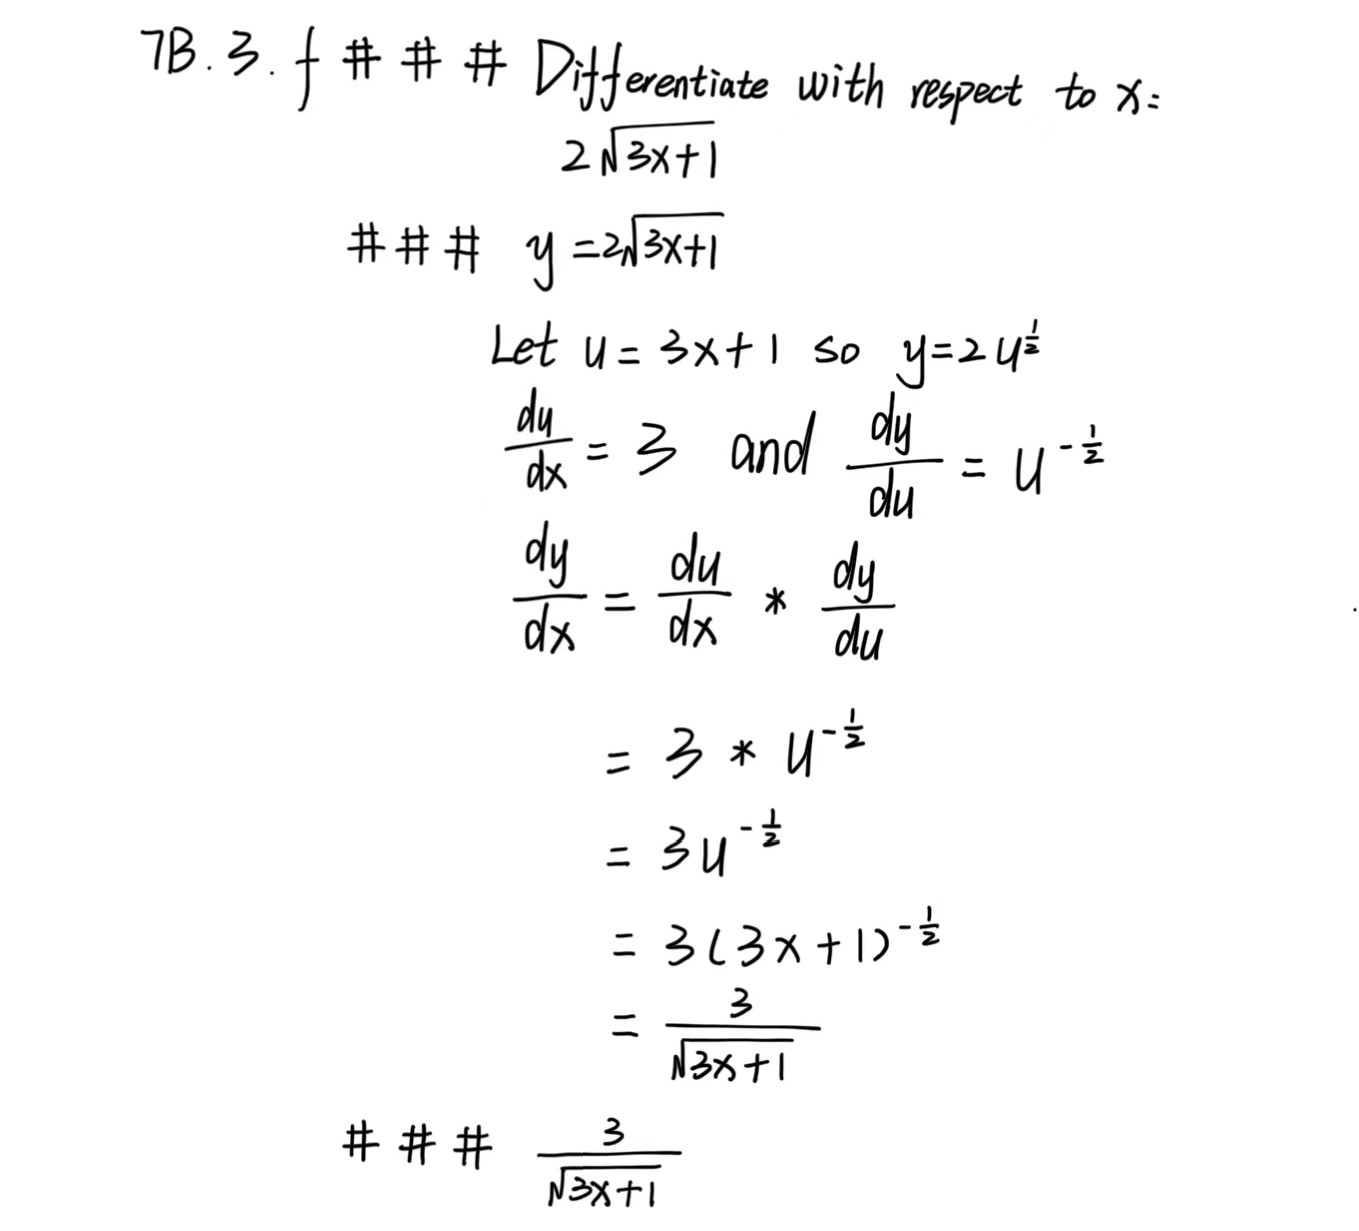 7B.3.f # # # Differentiate with respect to x:
2√(3x+1)
### y=2√(3x+1)
Let u=3x+1 so y=2u^(1/2)
du/dx = 3 and dy/du = u^(-1/2)
dy/dx = du/dx * dy/du
= 3 * u^(-1/2)
= 3u^(-1/2)
= 3(3x+1)^(-1/2)
= 3/√(3x+1)
# # # 3/√(3x+1)